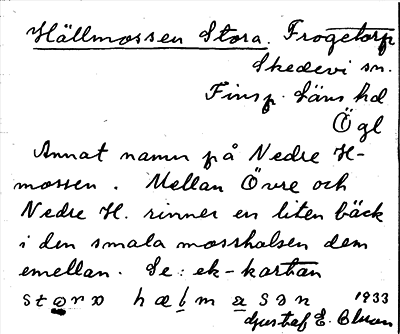 Hällmossen Stora. Frogetorp
Skedevi sn.
Finsp. Läns hd
Ögl
Annat namn på Nedre H-
mossen. Mellan Övre och
Nedre H. rinner en liten bäck
i den smala mosshalsen dem
emellan. Se: ek-kartan
1933
Gustaf E.